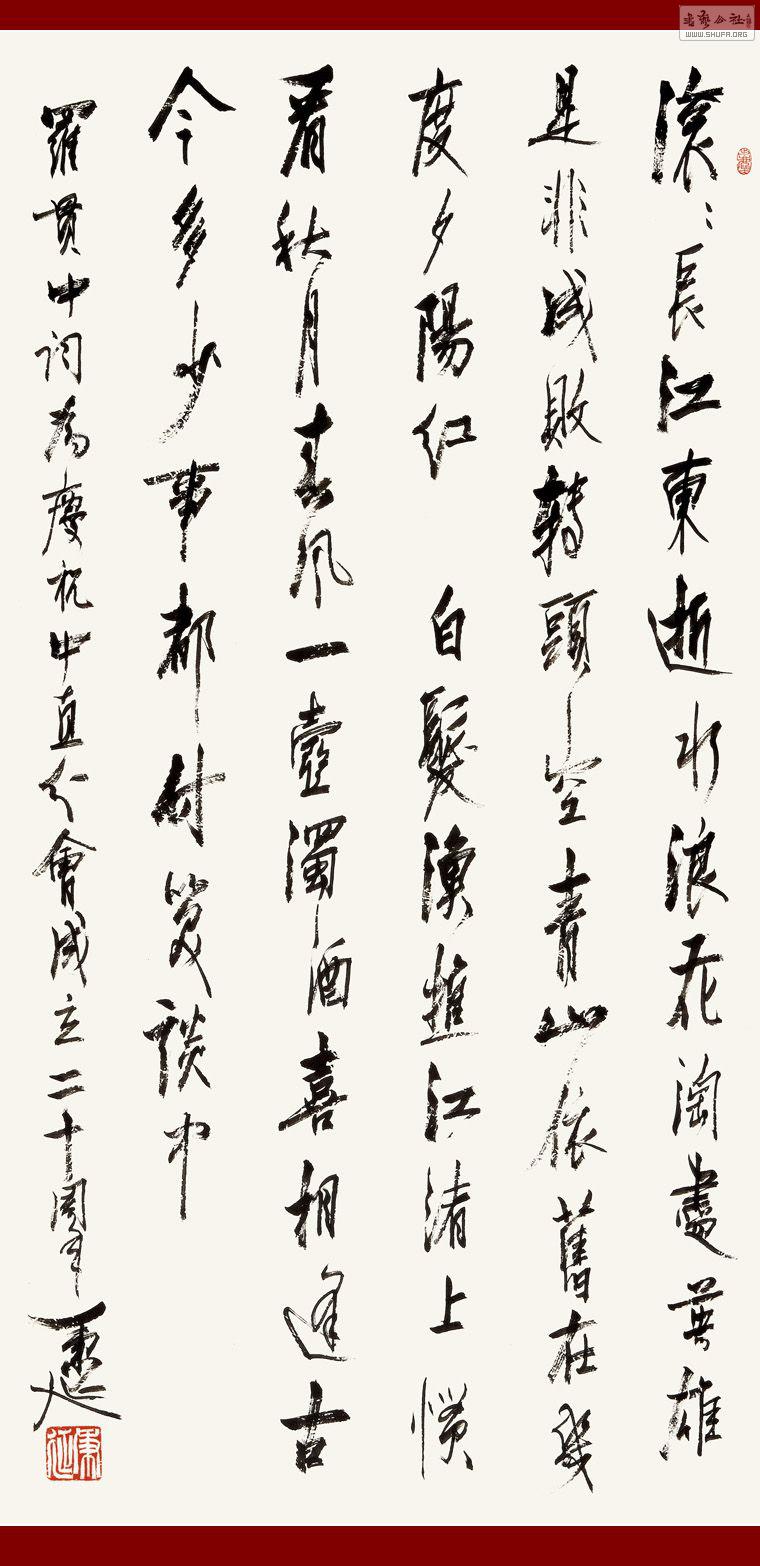 滚〻長江東逝水浪花淘盡英雄
是非成敗轉頭空青山依舊在幾
度夕陽红 白髮漁樵江渚上慣
看秋月春风一壺濁酒喜相逢古
今多少事都付笑談中
羅貫中词為慶祝中直分會成立二十周年
書艺公社
WWW.SHUFA.ORG